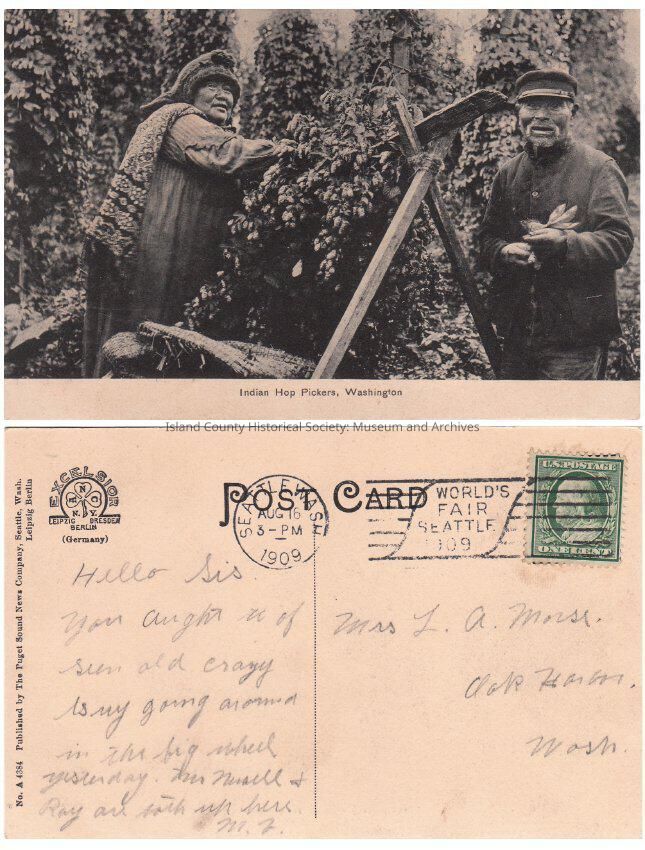 Indian Hop Pickers, Washington
Island County Historical Society: Museum and Archives
No. A 4384 Published by The Puget Sound News Company, Seattle, Wash.
Leipzig Berlin
EXCELSIOR
A N C
N.Y.
LEIPZIG DRESDEN
BERLIN
(Germany)
POST CARD
SEATTLE, WASH
AUG 16
3-PM
1909
WORLD'S
FAIR
SEATTLE
1909
U.S. POSTAGE
ONE CENT
Hello Sis.
You aught to of
seen old crazy
going around
in the big wheel
yesterday. &
Roy are both up here.
Mrs L. A. Morse.
Oak Harbor,
Wash.